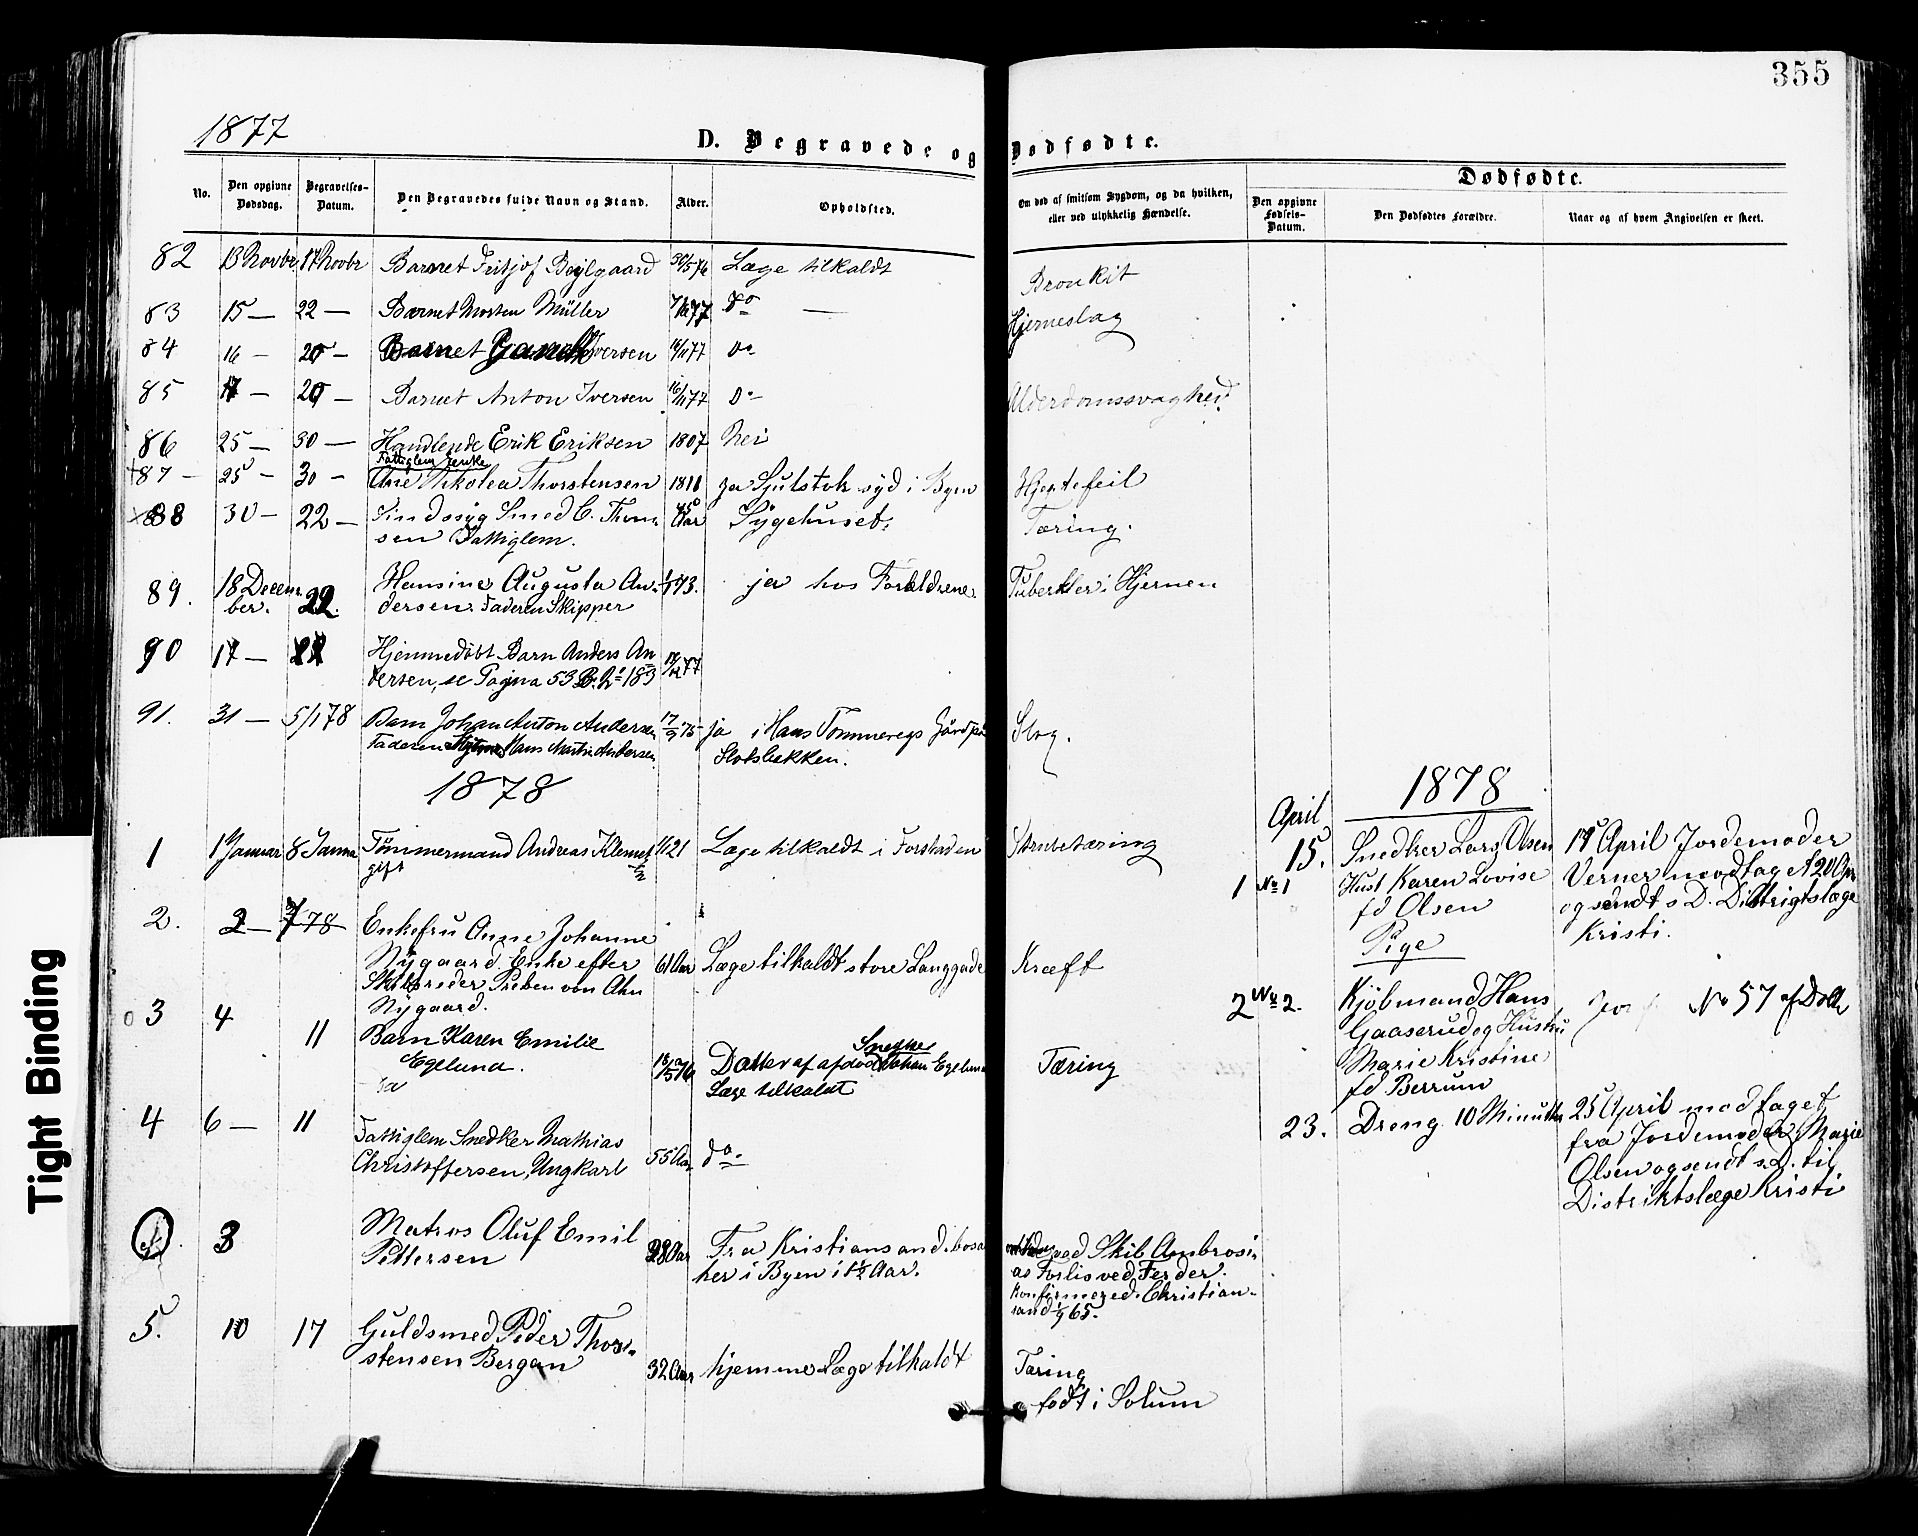 355
1877
D. Begravede og Dødfødte.
No.
Den opgivne Dødsdag.
Begravelses-Datum.
Den Begravedes fulde Navn og Stand.
Alder.
Opholdsted.
Om død af smitsom Sygdom, og da hvilken, eller ved ulykkelig Hændelse.
Dødfødte.
Den opgivne Fødsels-Datum.
Den Dødfødtes Forældre.
Naar og af hvem Angivelsen er skeet.
82 13 Novbr 17 Novbr Barnet Fritjof 30/5 76 Læge tilkaldt Bronkit
83 15 — 22 — Barnet Morten Müller 77 Do — Hjerneslag
84 16 — 20 — Barnet Iversen 16/11 77 Do
85 17 — 20 — Barnet Anton Iversen 16/11 77 Do Alderdomssvaghed
86 25 — 30 — Handlende Erik Eriksen 1807 Nei
Fattiglem Enke
87 — 25 — 30 — Ane Nikolea Thorstensen 1811 ja syd i Byen Hjertefeil
88 30 — 22 — Sindssyg Smed C. Thom- Aar Sygehuset. Tæring.
sen Fattiglem.
89. 18 Decem- 22. Hansine Augusta An- 73. ja hos Forældrene Tuberkler i Hjernen
ber. dersen. Faderen Skipper
90 17 — Hjemmedøbt Barn Anders An
dersen, se Pagina 53 No 183 17/12 77
91. 31 — 5/1 78 Barn Johan Anton Andersen 17/9 75 ja i Hans Tømmeregs Gård på Slag.
Faderen Hans Martin Andersen Slotsbakken.
1878
1 1 Januar 8 Janua Tømmermand Andreas Klemet- 21 Læge tilkaldt i Forstaden Strubetæring
gift
2. 2 — 78 Enkefru Anne Johanne
Nygaard. Enke efter 61 Aar Læge tilkaldt store Langgade Kræft
Skibsreder Preben von Ahn
Nygaard.
3 4 11 Barn Karen Emilie
Egelund. 18/5 76 Datter af afdød Snedker Johan Egelund Tæring
Læge tilkaldt
4 6 — 11 Fattiglem Snedker Mathias
Christoffersen, Ungkarl 55 Aar do
3 Matros Oluf Emil
Pettersen 28 Aar Fra Kristiansand. bosat ved Skib Ambrosi-
her i Byen i 1½ Aar. as Forlis ved Ferder.
Konfirmered. Christian-
sand 65.
5. 10 17 Guldsmed Peder Thor-
stensen Bergan 32 Aar hjemme Læge tilkaldt Tæring
født i Solum
1878
April
15. Snedker Lars Olsen 17 April Jordemoder
1 No 1 Hust Karen Lovise Verner modtaget
fd Olsen og sendt s D. Distrigtslæge
Pige Kristi.
2 No 2. Kjøbmand Hans No 57 af Dåb
Gaaserud og Hustru
Marie Kristine
fd Berrum
23. Dreng 10 Minutter 25 April modtaget
fra Jordemoder Marie
Olsen og sendt s. D. til
Distriktslæge Kristi
Tight Binding